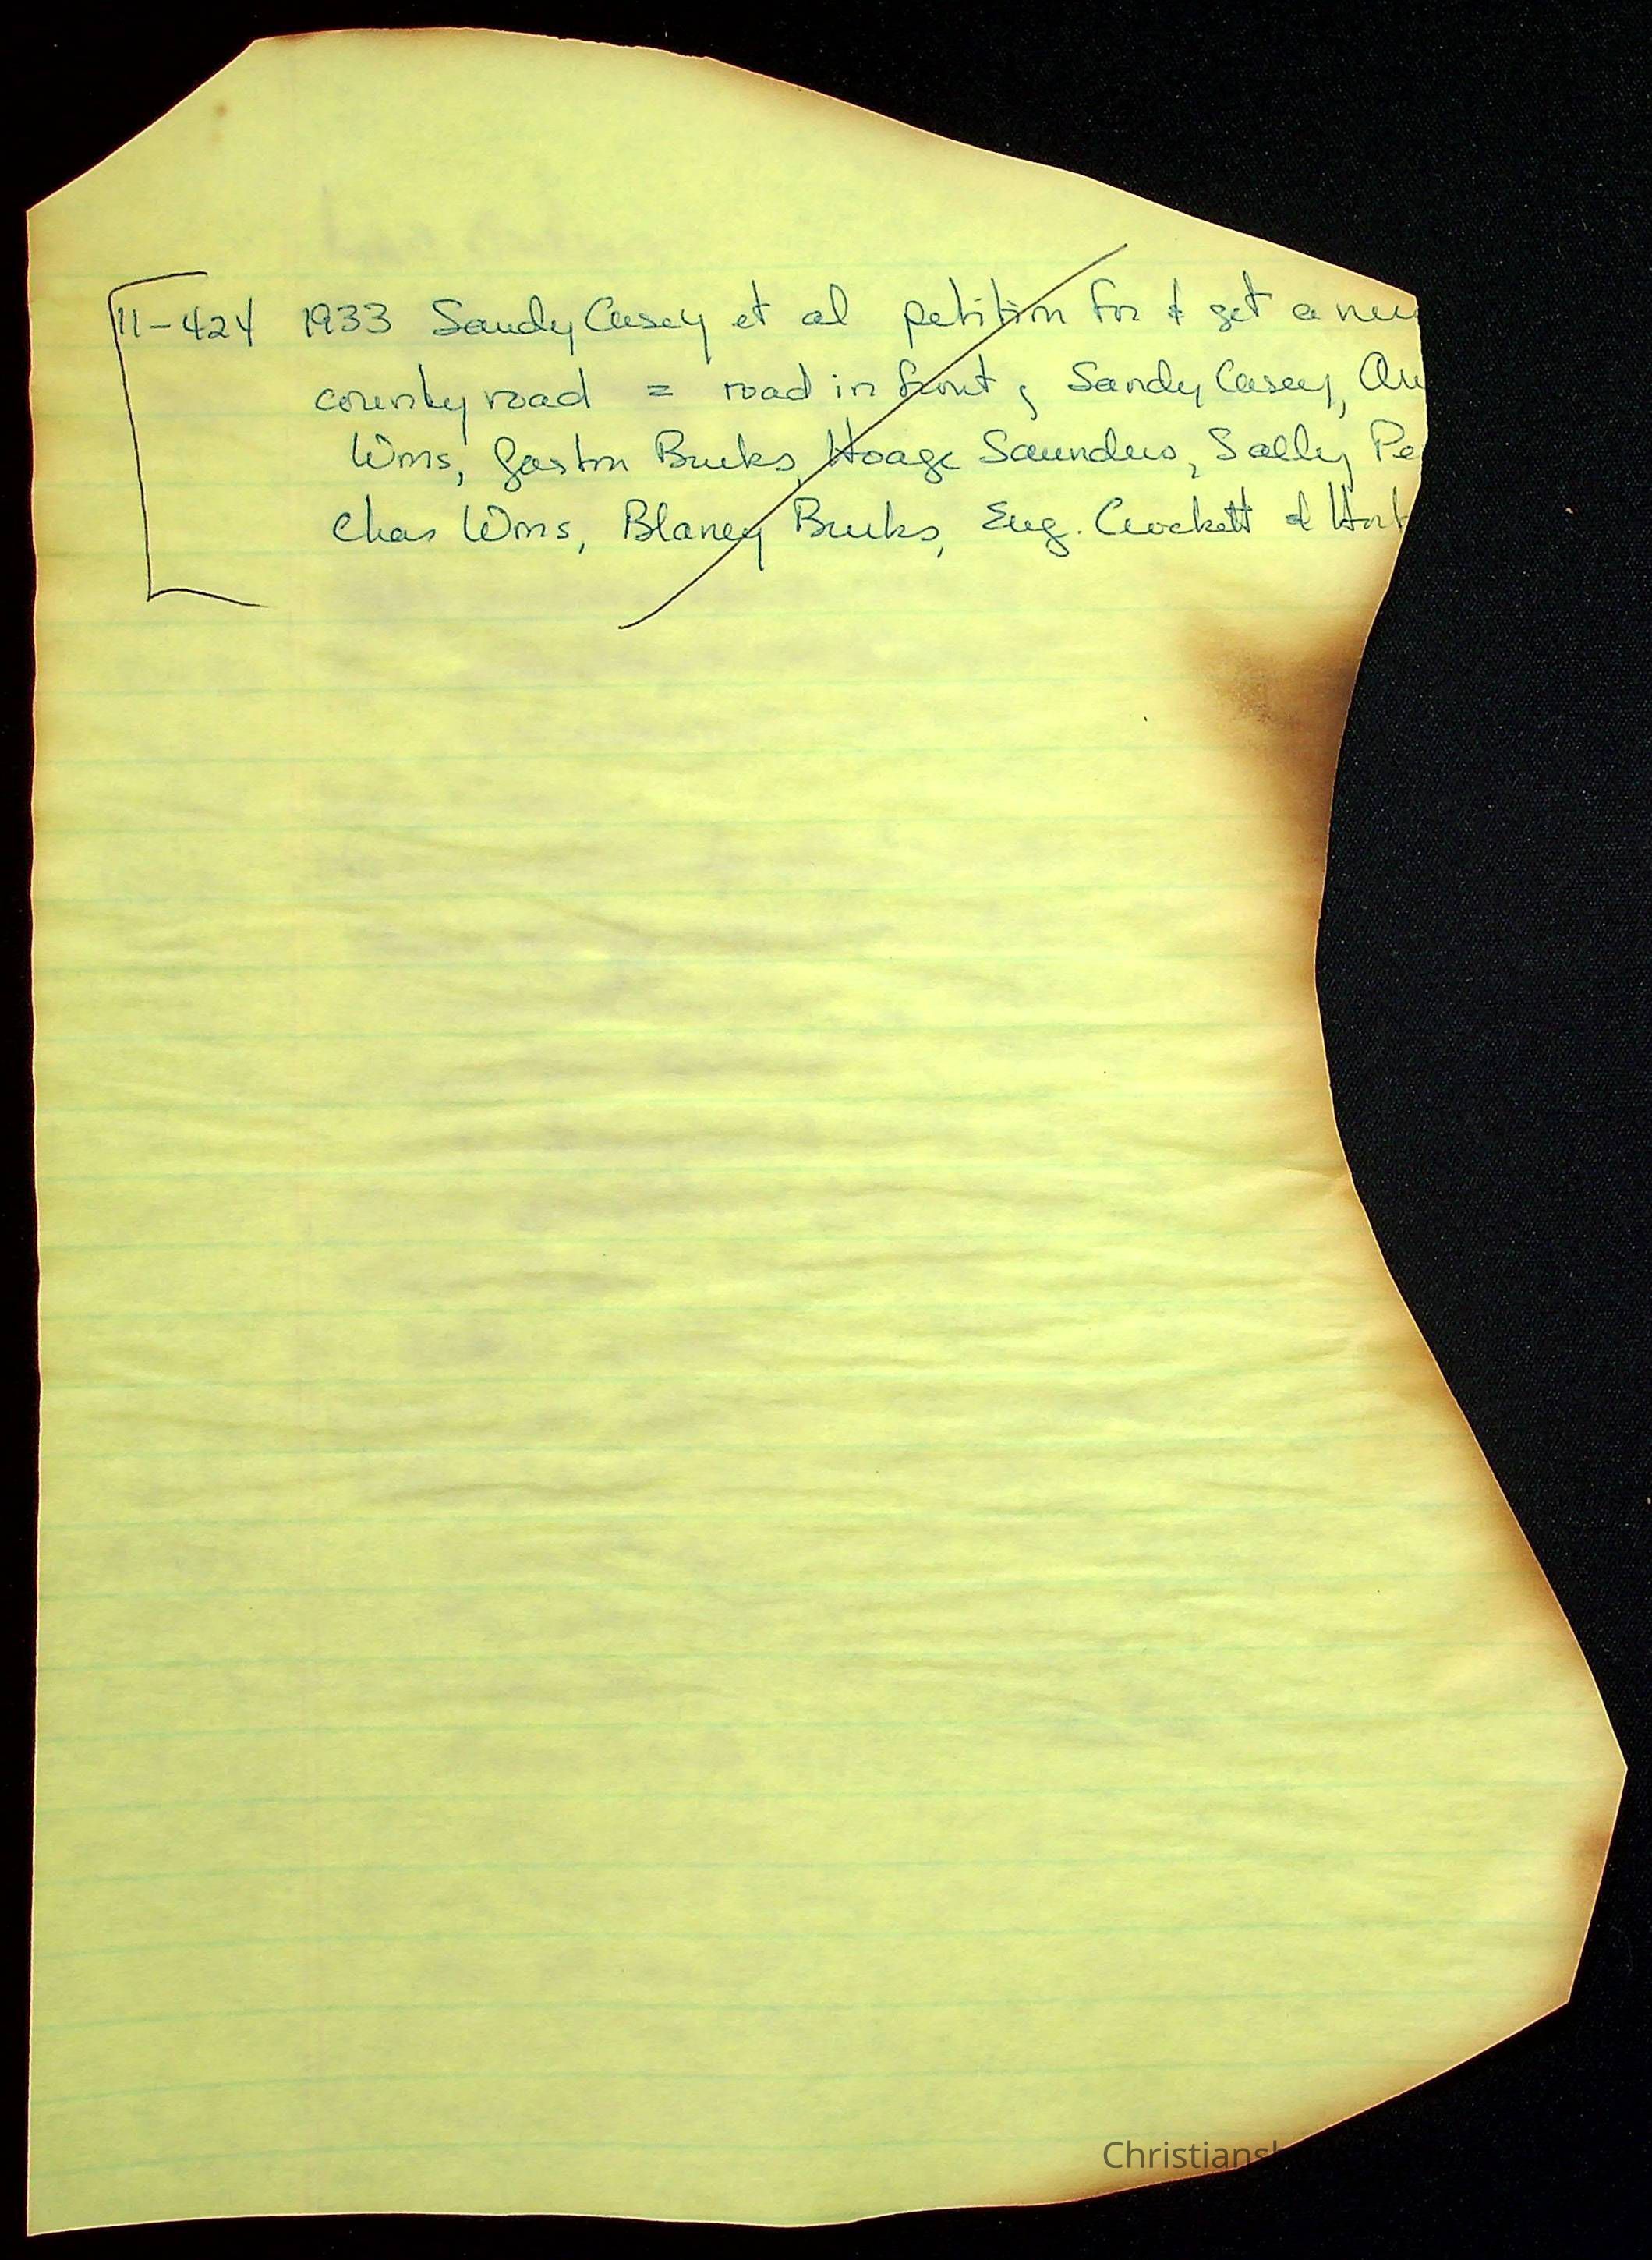 11-424 1933 Sandy Casey et al petition for & get a new
county road = road in front of Sandy Casey,
Wms, Gaston Burks, Hoage Saunders, Sally Pe
Chas Wms, Blaney Burks, Eug. Crockett &